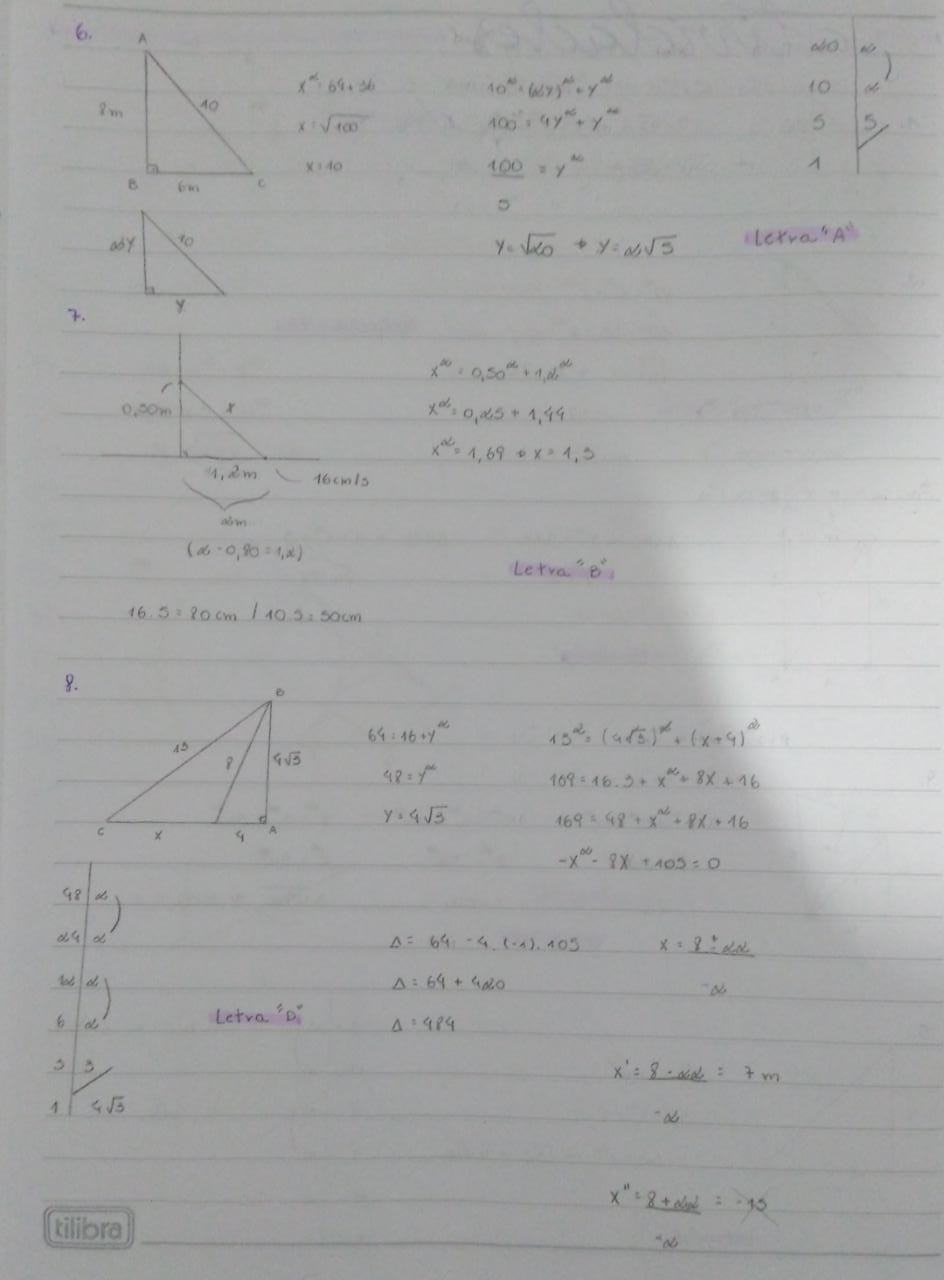 6.
A
8m
10
B
6m
C
x² = 64 + 36
x = √100
x = 10
10² = (2y)² + y²
100 = 4y² + y²
100 = y²
5
y = √20 → y = 2√5
20 | 2
10 | 2
5 | 5
1
Letra "A"
2y
10
y
7.
0,50m
x
1,2m
16cm/s
2m
(2 - 0,80 = 1,2)
x² = 0,50² + 1,2²
x² = 0,25 + 1,44
x² = 1,69 → x = 1,3
Letra "B"
16.5 = 80cm / 10.5 = 50cm
8.
B
13
8
4√3
C
x
4
A
64 = 16 + y²
48 = y²
y = 4√3
13² = (4√3)² + (x+4)²
169 = 16.3 + x² + 8x + 16
169 = 48 + x² + 8x + 16
-x² - 8x + 105 = 0
48 | 2
24 | 2
12 | 2
6 | 2
3 | 3
1
4√3
Letra "D"
Δ = 64 - 4.(-1).105
Δ = 64 + 420
Δ = 484
x = 8 ± 22
-2
x' = 8 - 22 = 7m
-2
x" = 8 + 22 = -15
-2
tilibra